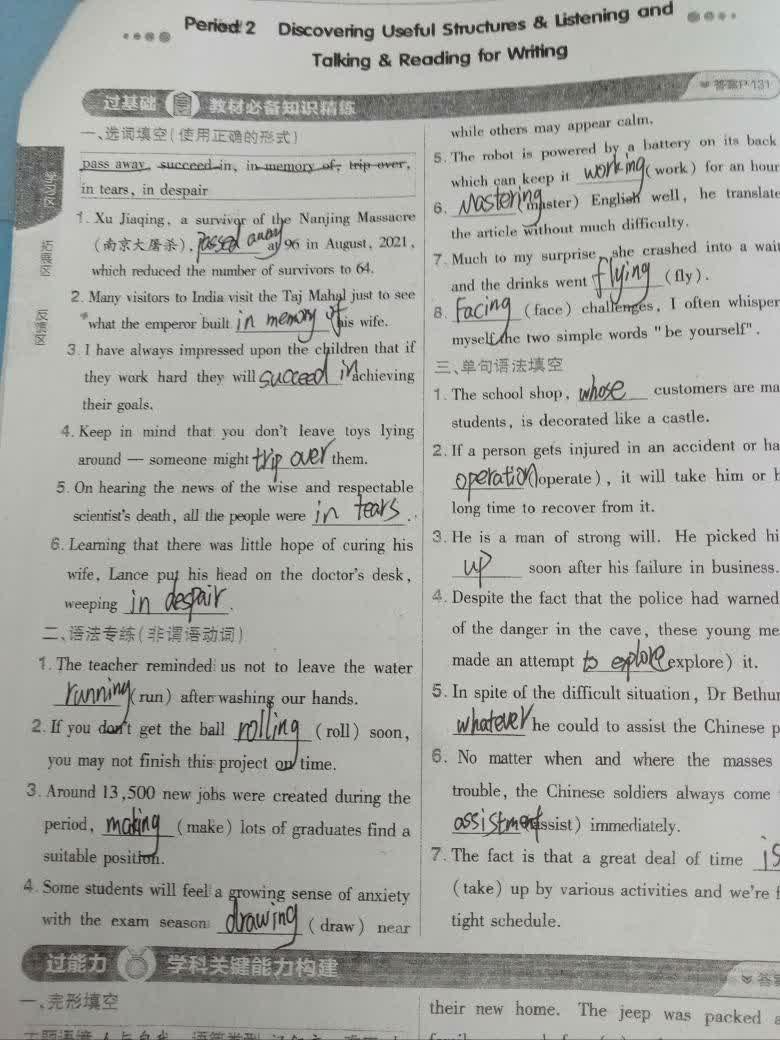 Period 2 Discovering Useful Structures & Listening and
Talking & Reading for Writing
过基础 教材必备知识精练
答案P131
学习区
拓展区
一、选词填空(使用正确的形式)
pass away, succeed in, in memory of, trip over,
in tears, in despair
1. Xu Jiaqing, a survivor of the Nanjing Massacre
(南京大屠杀), passed away at 96 in August, 2021,
which reduced the number of survivors to 64.
2. Many visitors to India visit the Taj Mahal just to see
what the emperor built in memory of his wife.
3. I have always impressed upon the children that if
they work hard they will succeed in achieving
their goals.
4. Keep in mind that you don't leave toys lying
around — someone might trip over them.
5. On hearing the news of the wise and respectable
scientist's death, all the people were in tears.
6. Learning that there was little hope of curing his
wife, Lance put his head on the doctor's desk,
weeping in despair.
二、语法专练(非谓语动词)
1. The teacher reminded us not to leave the water
running (run) after washing our hands.
2. If you don't get the ball rolling (roll) soon,
you may not finish this project on time.
3. Around 13,500 new jobs were created during the
period, making (make) lots of graduates find a
suitable position.
4. Some students will feel a growing sense of anxiety
with the exam season drawing (draw) near
while others may appear calm.
5. The robot is powered by a battery on its back
which can keep it working (work) for an hour
6. Mastering (master) English well, he translate
the article without much difficulty.
7. Much to my surprise, she crashed into a wait
and the drinks went flying (fly).
8. Facing (face) challenges, I often whisper
myself the two simple words "be yourself".
三、单句语法填空
1. The school shop, whose customers are ma
students, is decorated like a castle.
2. If a person gets injured in an accident or ha
operation (operate), it will take him or h
long time to recover from it.
3. He is a man of strong will. He picked hi
up soon after his failure in business.
4. Despite the fact that the police had warned
of the danger in the cave, these young me
made an attempt to explore (explore) it.
5. In spite of the difficult situation, Dr Bethun
whatever he could to assist the Chinese p
6. No matter when and where the masses
trouble, the Chinese soldiers always come
assistment (assist) immediately.
7. The fact is that a great deal of time is
(take) up by various activities and we're f
tight schedule.
过能力 学科关键能力构建
答案
一、完形填空
their new home. The jeep was packed a